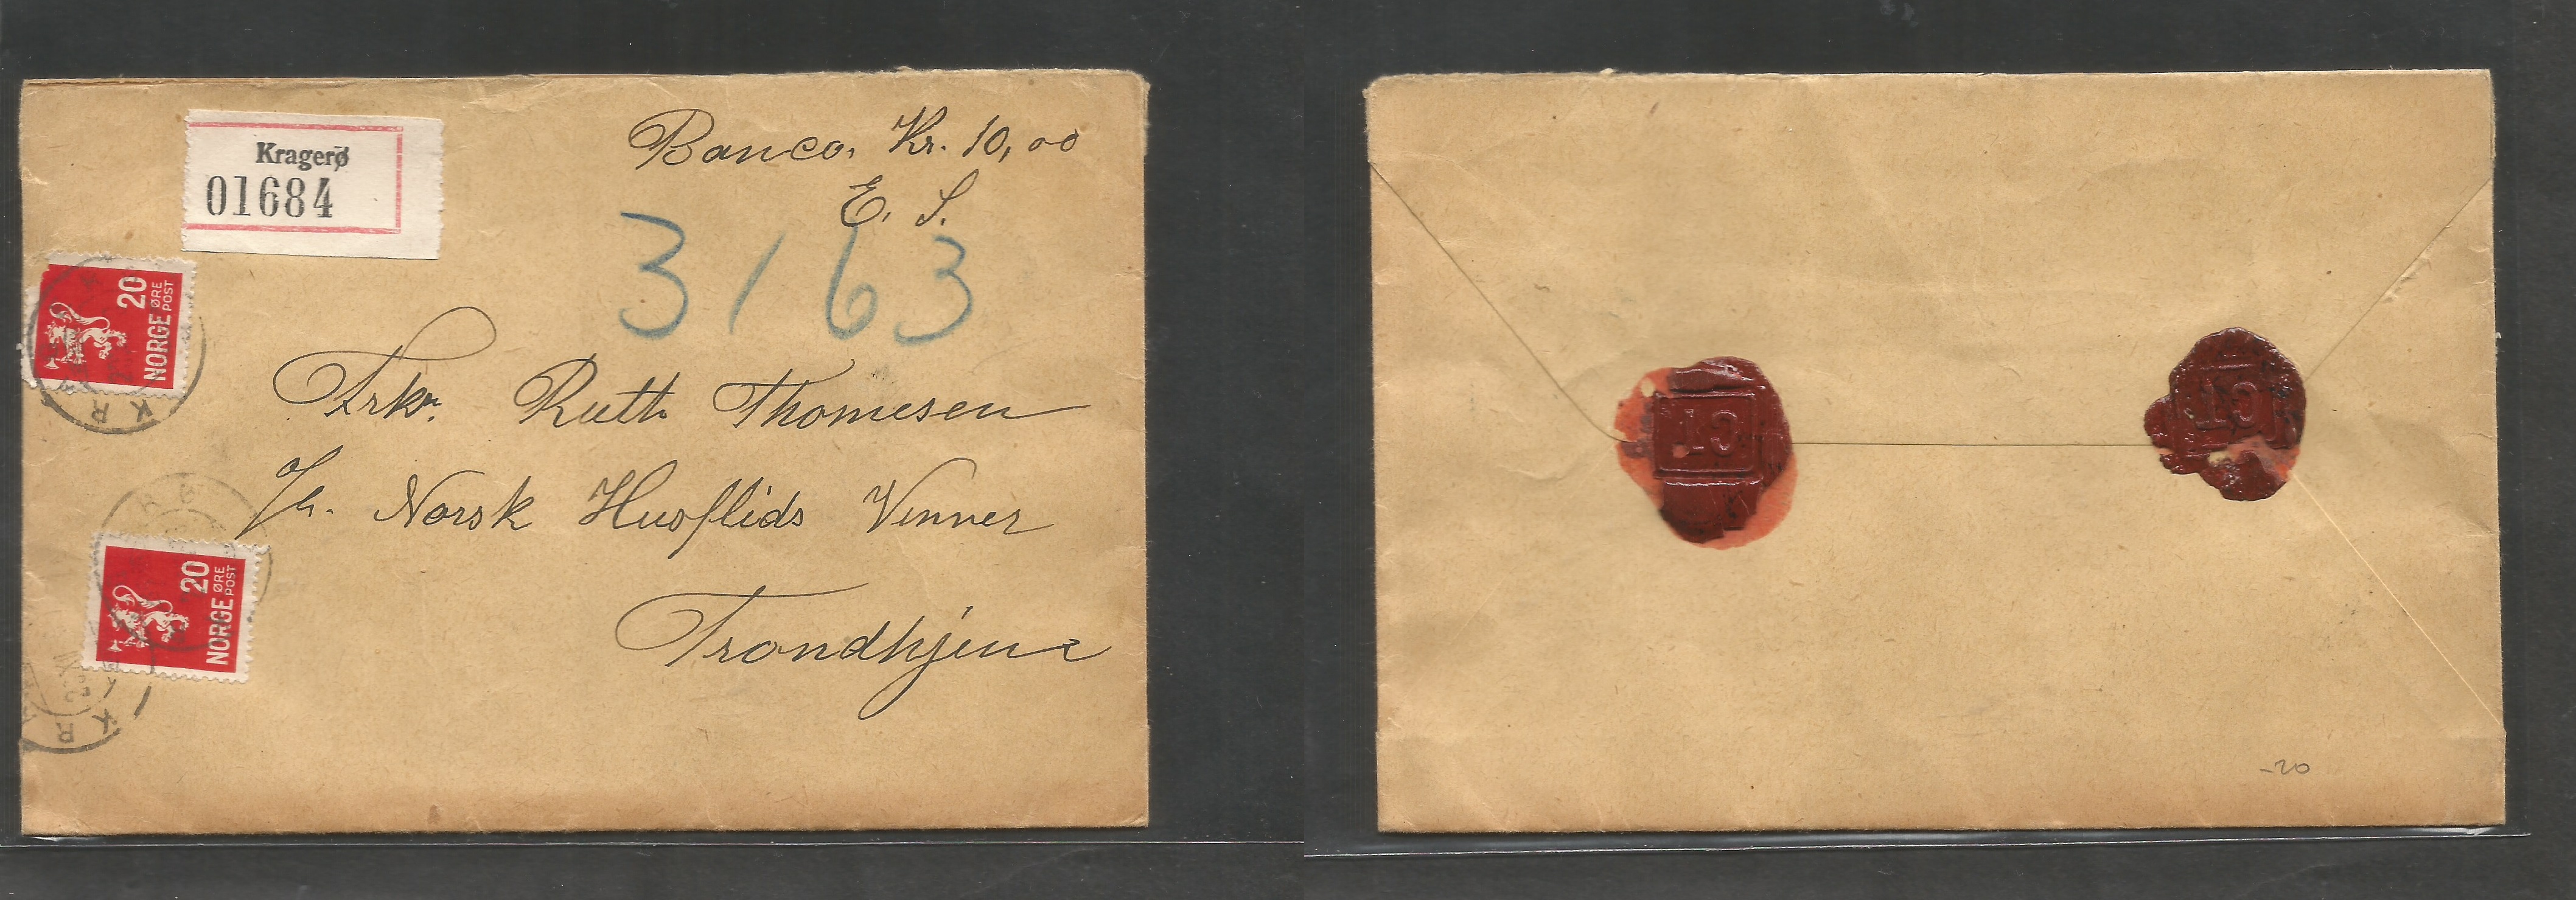 Kragerø
01684
Banco. Kr. 10,00
E. S.
3163
20
ØRE
POST
NORGE
KR
Frkn. Ruth Thomesen
Norsk Husflids Venner
Trondhjem
20
ØRE
POST
NORGE
KR
CT
CT
-20